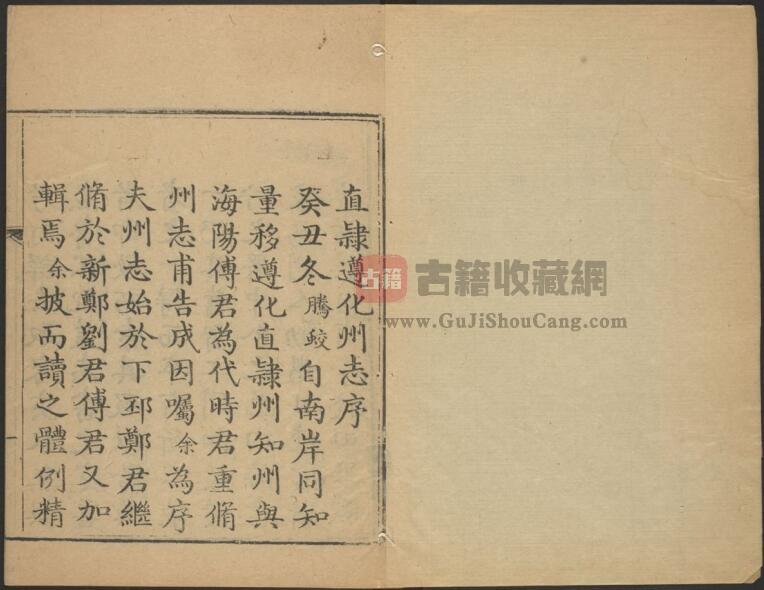 直隷遵化州志序
癸丑冬騰蛟自南岸同知
量移遵化直隷州知州與
海陽傅君為代時君重脩
州志甫告成因囑余為序
夫州志始於下邳鄭君繼
脩於新鄭劉君傅君又加
輯焉余披而讀之體例精
古籍
古籍收藏網
www.GuJiShouCang.com